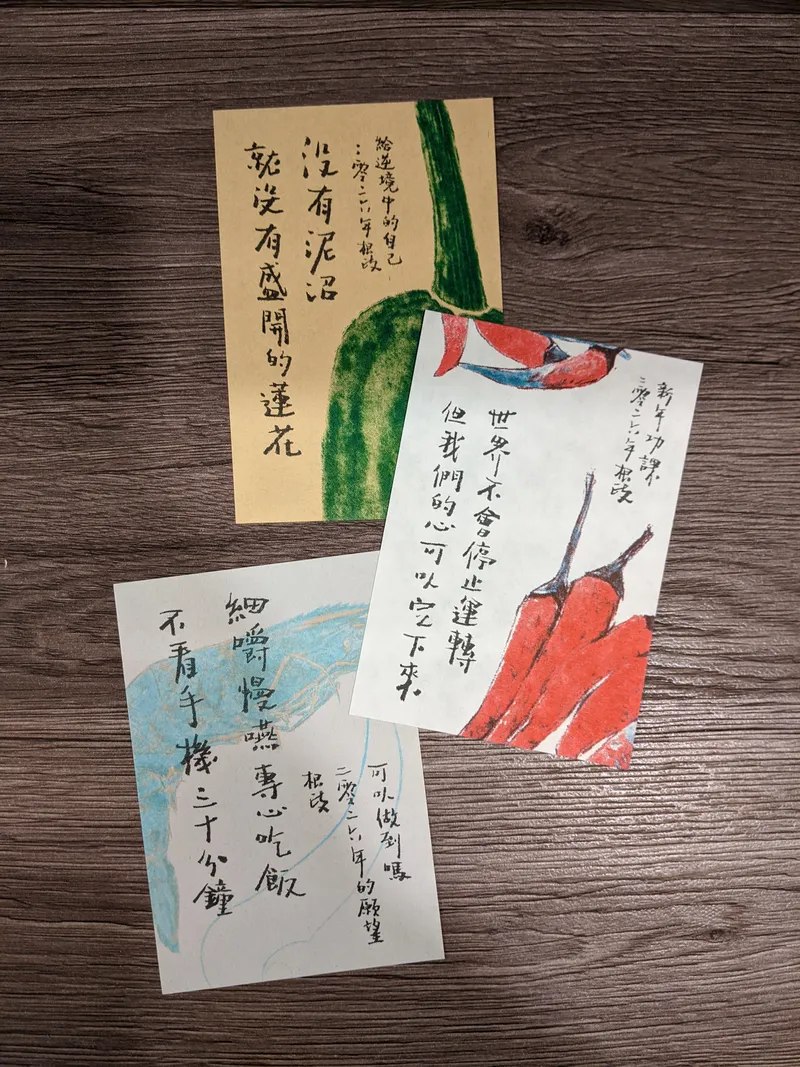 給逆境中的自己
二零二六年
沒有泥沼
就沒有盛開的蓮花
新年功課
二零二六年
世界不會停止運轉
但我們的心可以空下來
可以做到嗎
二零二六年的願望
細嚼慢嚥專心吃飯
不看手機三十分鐘